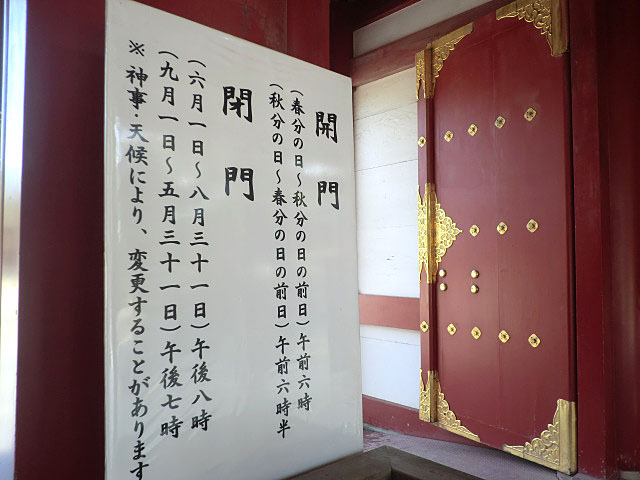 開門
(春分の日～秋分の日の前日)午前六時
(秋分の日～春分の日の前日)午前六時半
閉門
(六月一日～八月三十一日)午後八時
(九月一日～五月三十一日)午後七時
※神事・天候により、変更することがあります